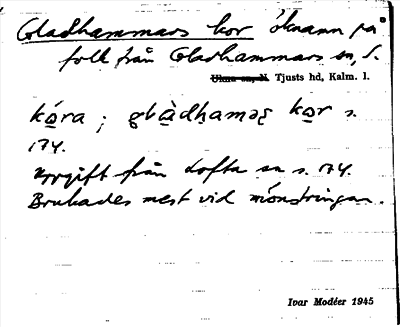 Gladhammars kor öknamn på
folk från Gladhammars sn, S.
Ukna sn, N. Tjusts hd, Kalm. l.
kọ́ra ; gladhamaṣ kọr s.
174.
uppgift från Lofta sn s. 174.
Brukades mest vid mönstringar.
Ivar Modéer 1945